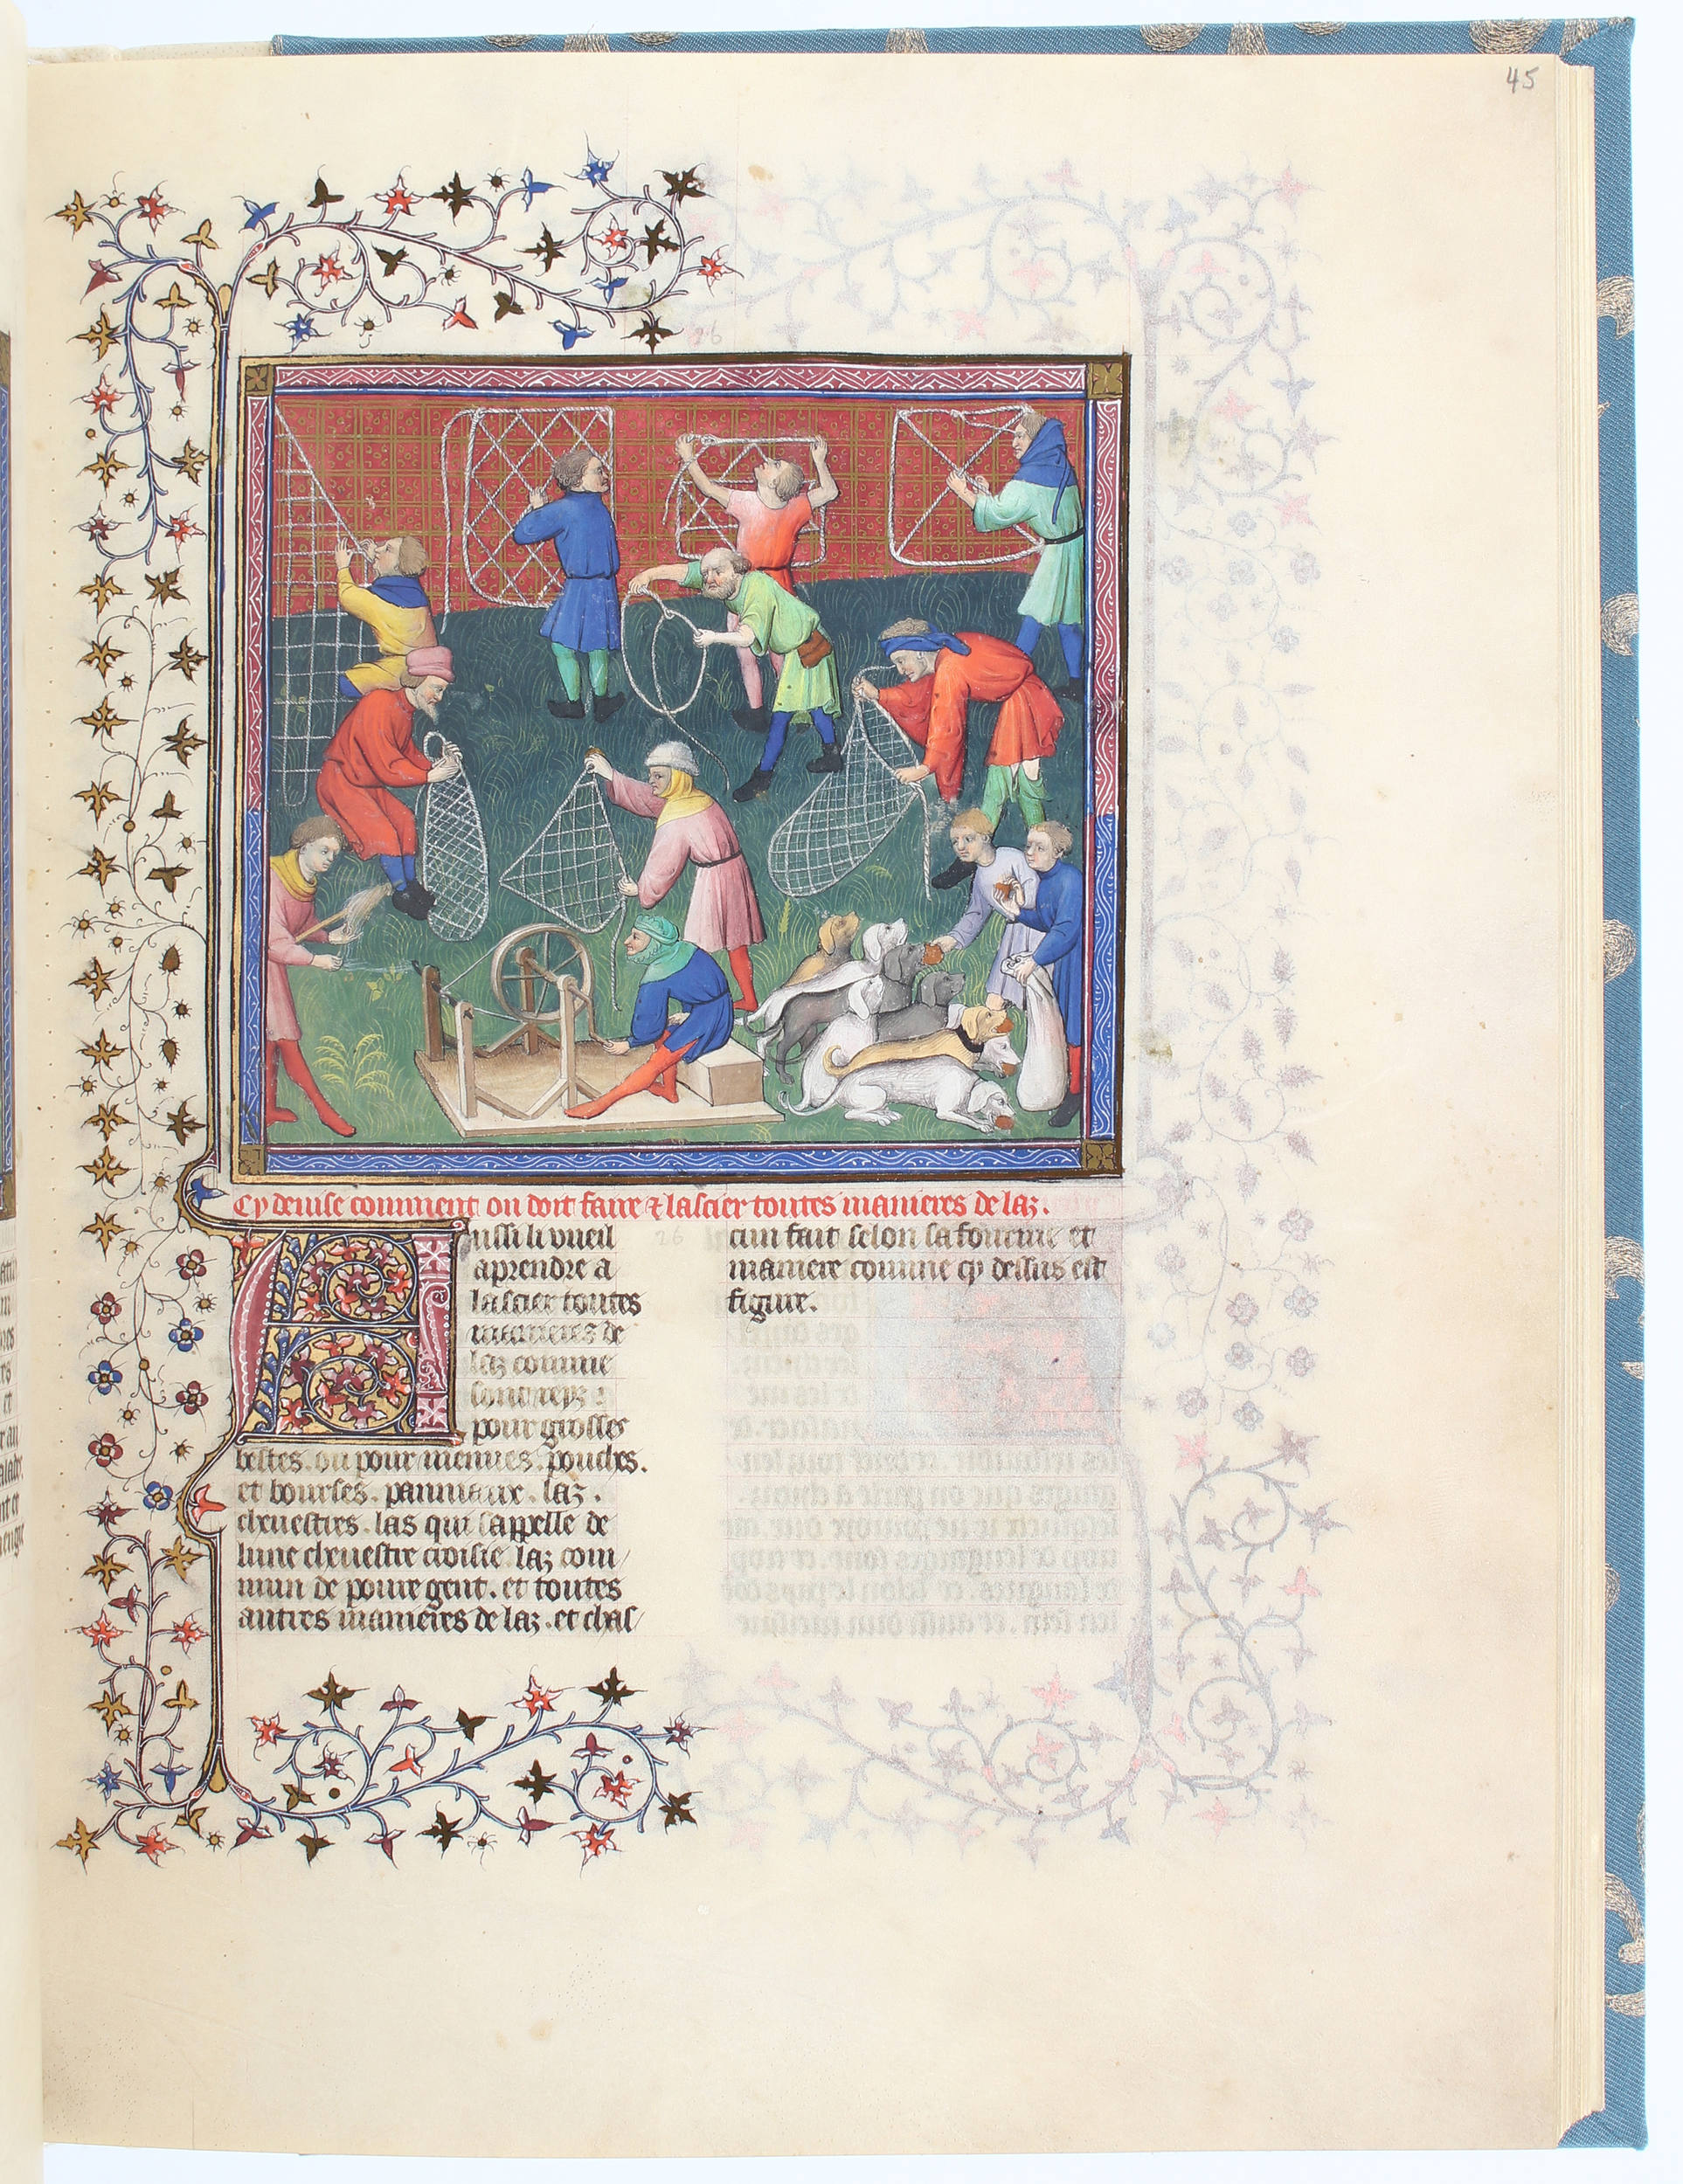 45
26
Cy deuise comment on doit faire & lascier toutes manieres de laz.
Aussi li vueil
aprendre a
lascier toutes
manieres de
laz comme
pour grosses
bestes. ou pour menues. pouches.
et bourses. panniaux. laz.
cheuestres. las qui sappelle de
lune cheuestre croisie. laz com/
mun de poure gent. et toutes
autres manieres de laz. et chas/
cun fait selon sa fourme et
maniere comme cy dessus est
figure.